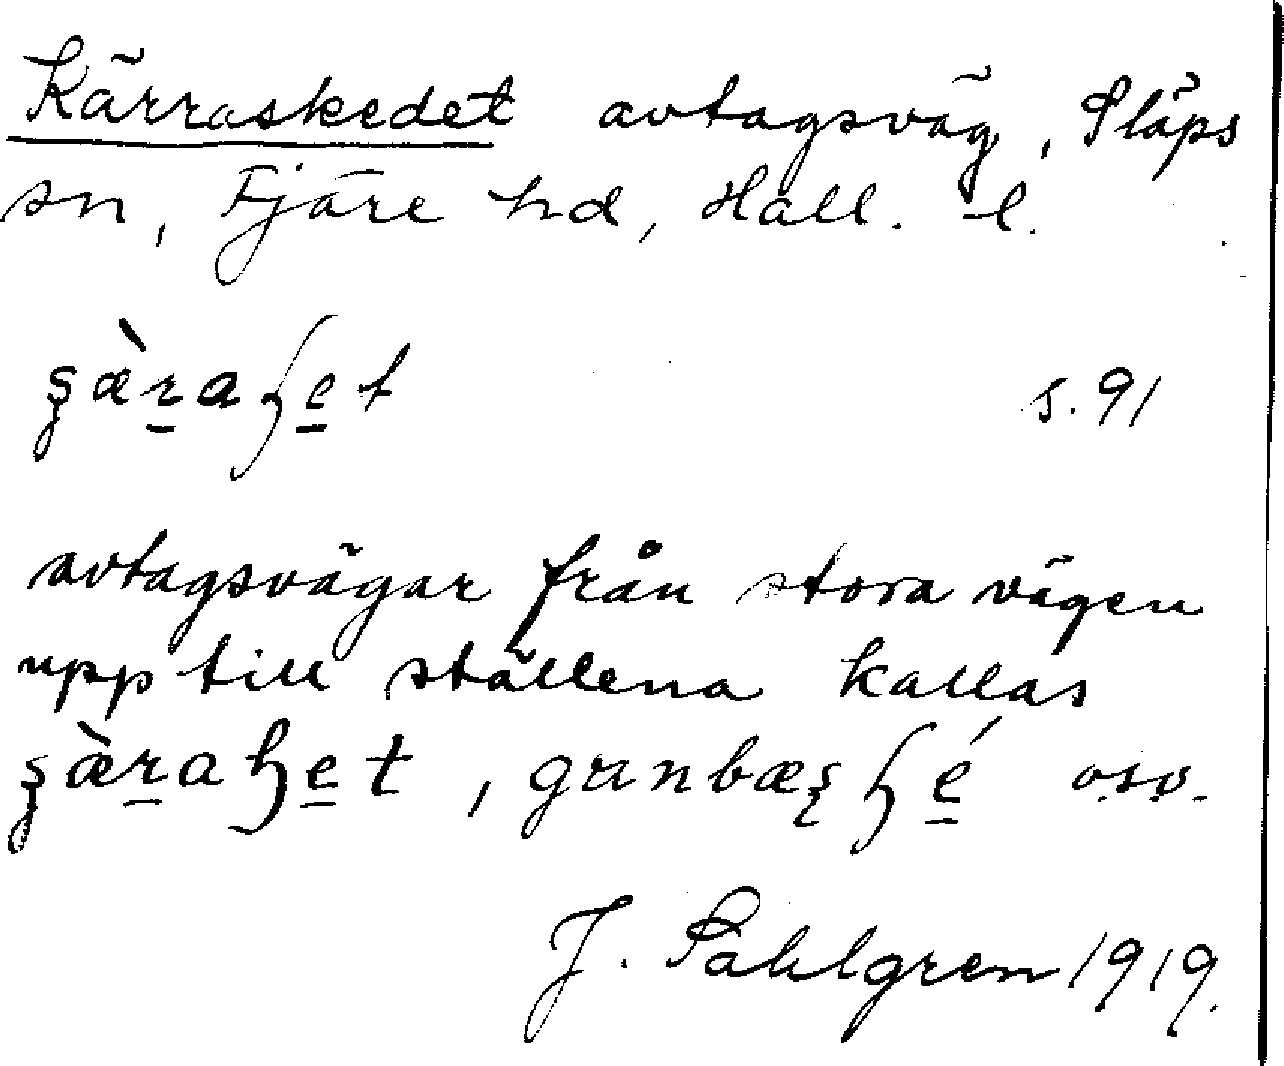 Kärraskedet avtagsväg, Släps
sn, Fjäre hd, Hall. l.
s. 91
avtagsvägar från stora vägen
upp till ställena kallas
o.s.v.
J. Sahlgren 1919.